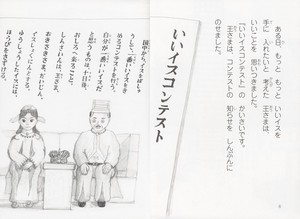 ある日、もっと もっと いいイスを
手に 入れたいと 考えた 王さまは、
いいことを 思いつきました。
「いいイスコンテスト」の かいさいです。
王さまは、コンテストの
知らせを しんぶんに
のせました。
6
いいイスコンテスト
国中から、イスをぼしゅ
うして、一番いいイスをき
めるコンテストを行う。
自分が一番いいイスだ
と思うものは、十日後、
おしろへ来ること。
しんさいんは、王さま、
おきさきさま、だいじん、
イスしょくにんとする。
ゆうしょうしたイスには、
ほうびをさずける。